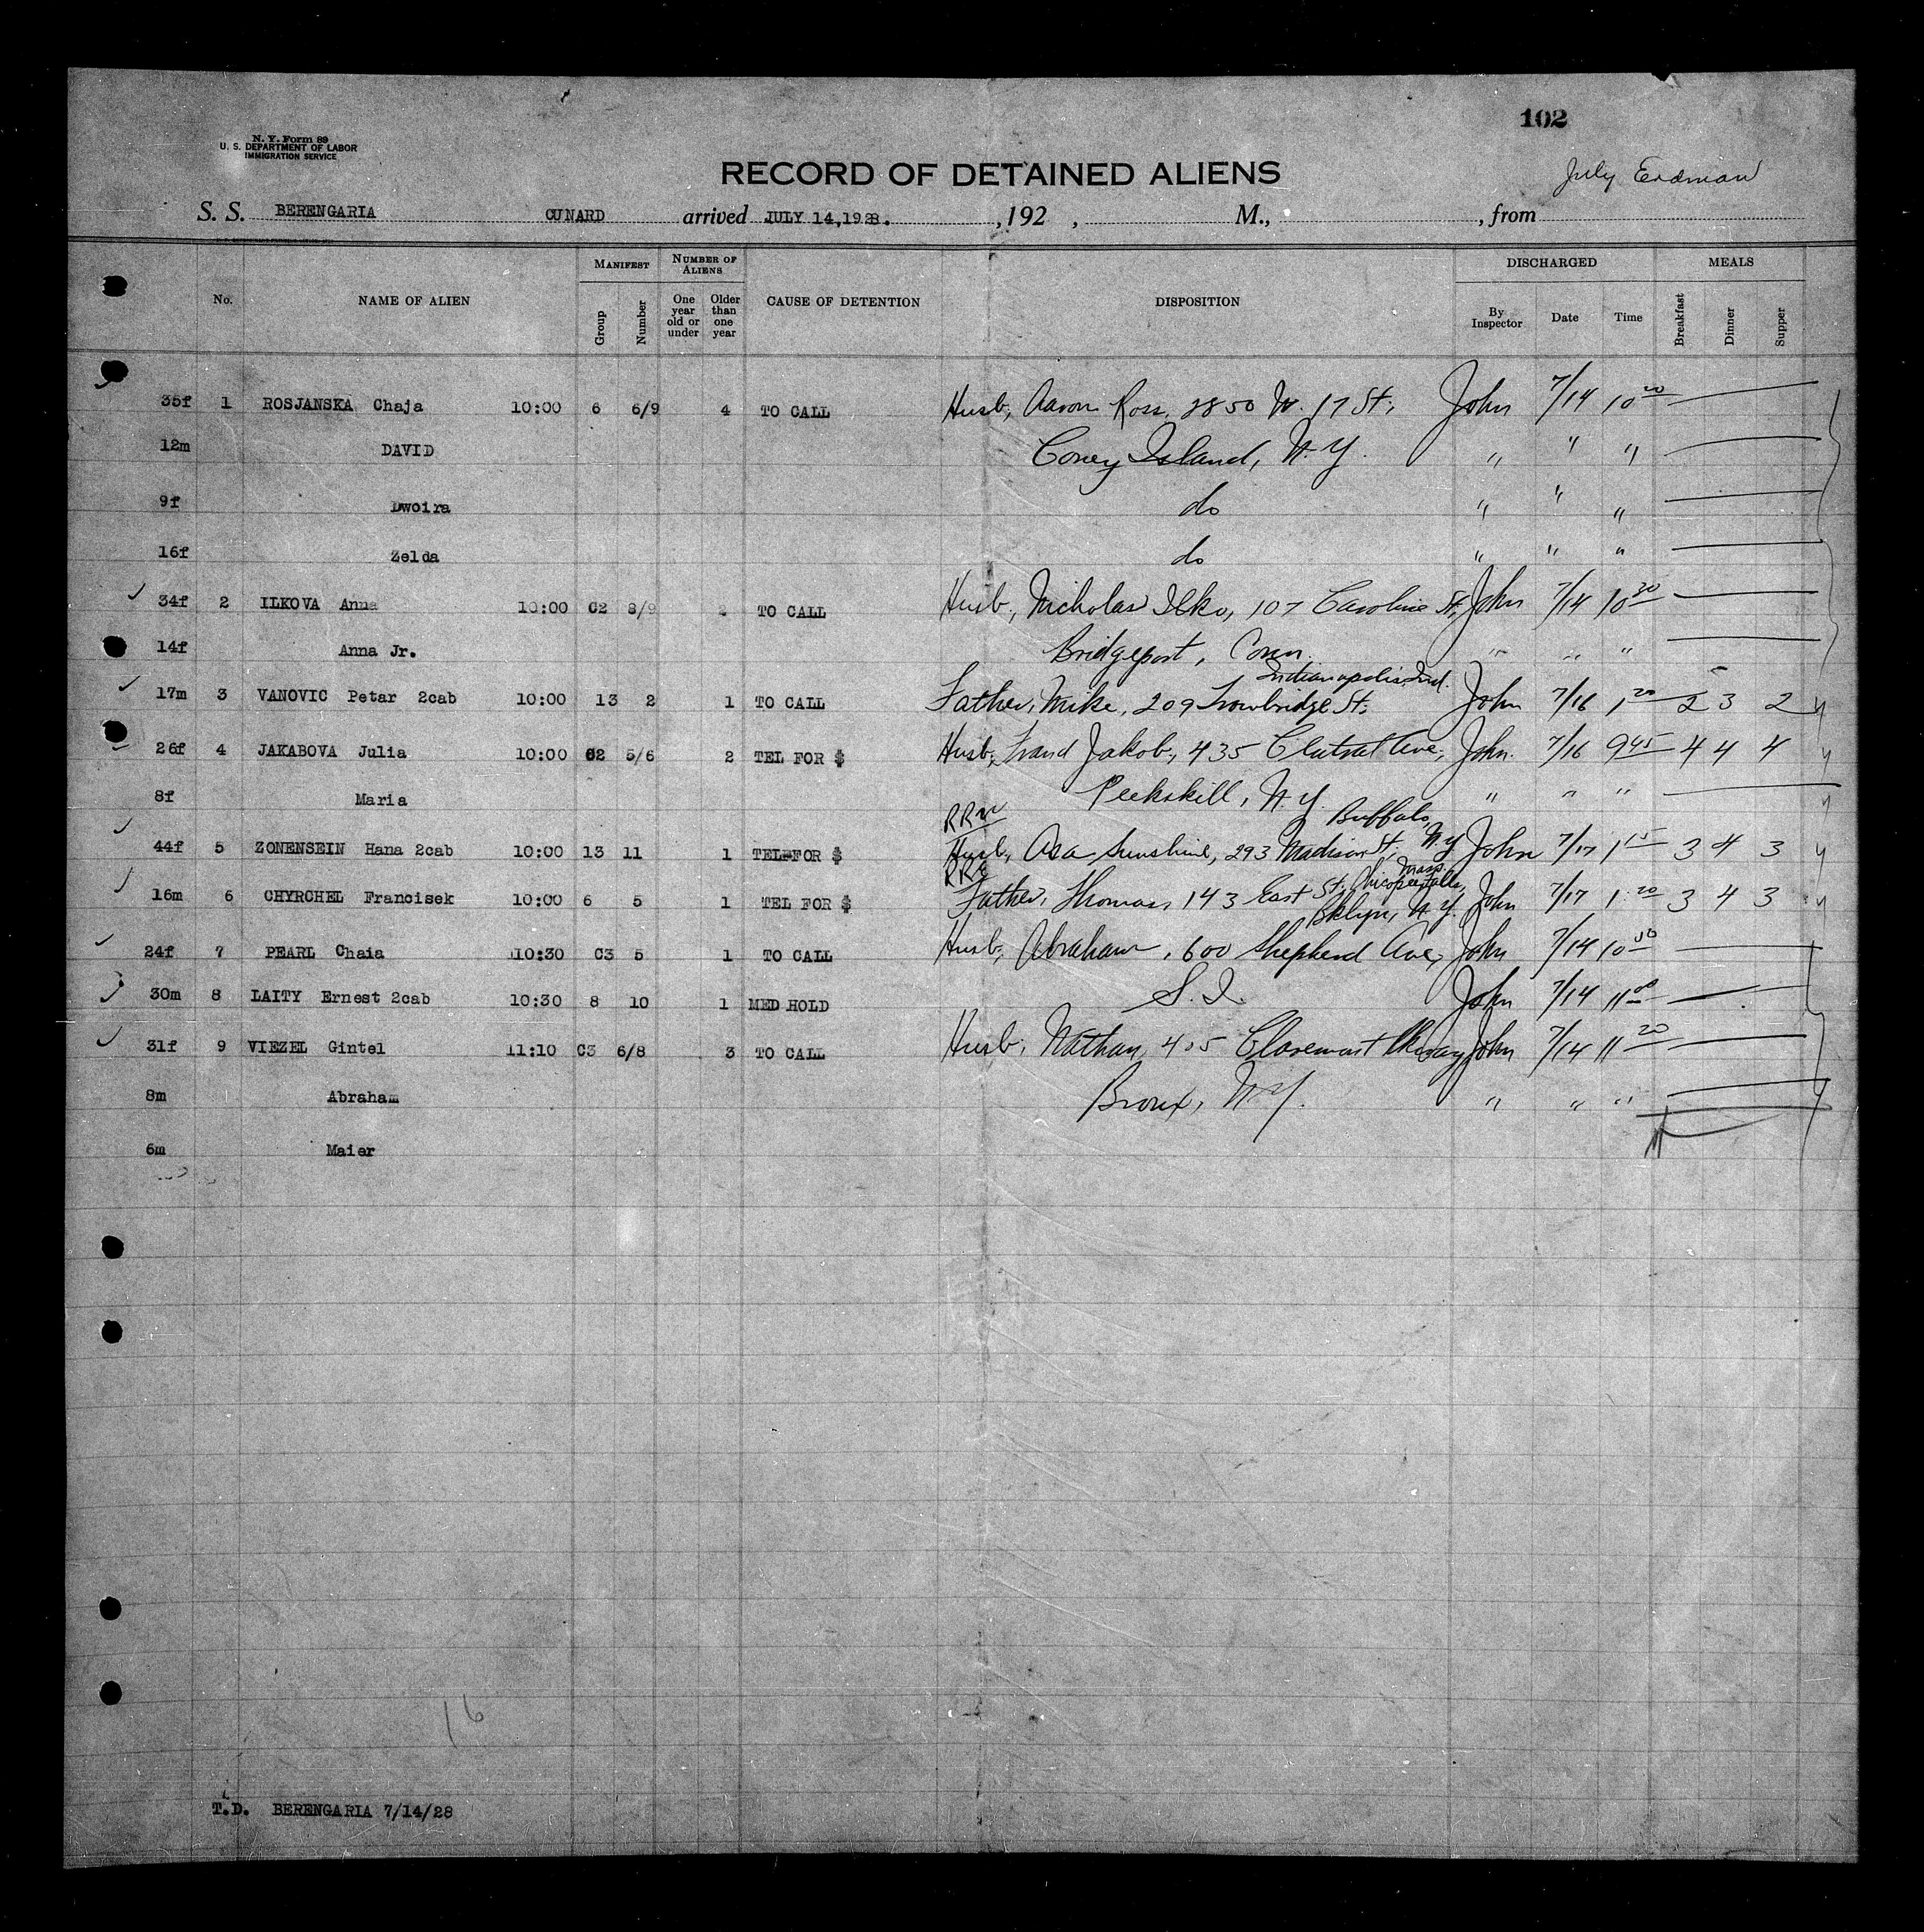 102
N. Y. Form 89
U. S. DEPARTMENT OF LABOR
IMMIGRATION SERVICE
RECORD OF DETAINED ALIENS
July Erdman
S. S. BERENGARIA CUNARD arrived JULY 14,1928. ,192 , M., , from
No. NAME OF ALIEN MANIFEST Group Number NUMBER OF ALIENS One year old or under Older than one year CAUSE OF DETENTION DISPOSITION DISCHARGED By Inspector Date Time MEALS Breakfast Dinner Supper
35f 1 ROSJANSKA Chaja 10:00 6 6/9 4 TO CALL Husb, Aaron Ross, 2850 W. 17 St, John 7/14 10 20
12m DAVID Coney Island, N.Y. " " "
9f Dwoira do " " "
16f Zelda do " " "
34f 2 ILKOVA Anna 10:00 C2 8/9 2 TO CALL Husb, Nicholas Ilko, 107 Caroline St, John 7/14 10 30
14f Anna Jr. Bridgeport, Conn. " " "
Indianapolis, Ind.
17m 3 VANOVIC Petar 2cab 10:00 13 2 1 TO CALL Father, Mike, 209 Trowbridge St, John 7/16 1 20 2 3 2
26f 4 JAKABOVA Julia 10:00 C2 5/6 2 TEL FOR $ Husb, Jakob, 435 Ave, John 7/16 9 45 4 4 4
8f Maria Peekskill, N.Y. " " "
Buffalo,
44f 5 ZONENSEIN Hana 2cab 10:00 13 11 1 TEL FOR $ Husb, Asa Sunshine, 293 Madison St, N.Y. John 7/17 1 15 3 4 3
Mass.
16m 6 CHYRCHEL Francisek 10:00 6 5 1 TEL FOR $ Father, Thomas, 143 East St, Chicopee Falls, John 7/17 1 20 3 4 3
Bklyn, N.Y.
24f 7 PEARL Chaia 10:30 C3 5 1 TO CALL Husb, Abraham, 600 Shepherd Ave, John 7/14 10
30m 8 LAITY Ernest 2cab 10:30 8 10 1 MED HOLD S.I. John 7/14 11 00
31f 9 VIEZEL Gintel 11:10 C3 6/8 3 TO CALL Husb, Nathan, 405 Claremont Pkway John 7/14 11 20
8m Abraham Bronx, N.Y. " " "
6m Maier
16
T.D. BERENGARIA 7/14/28